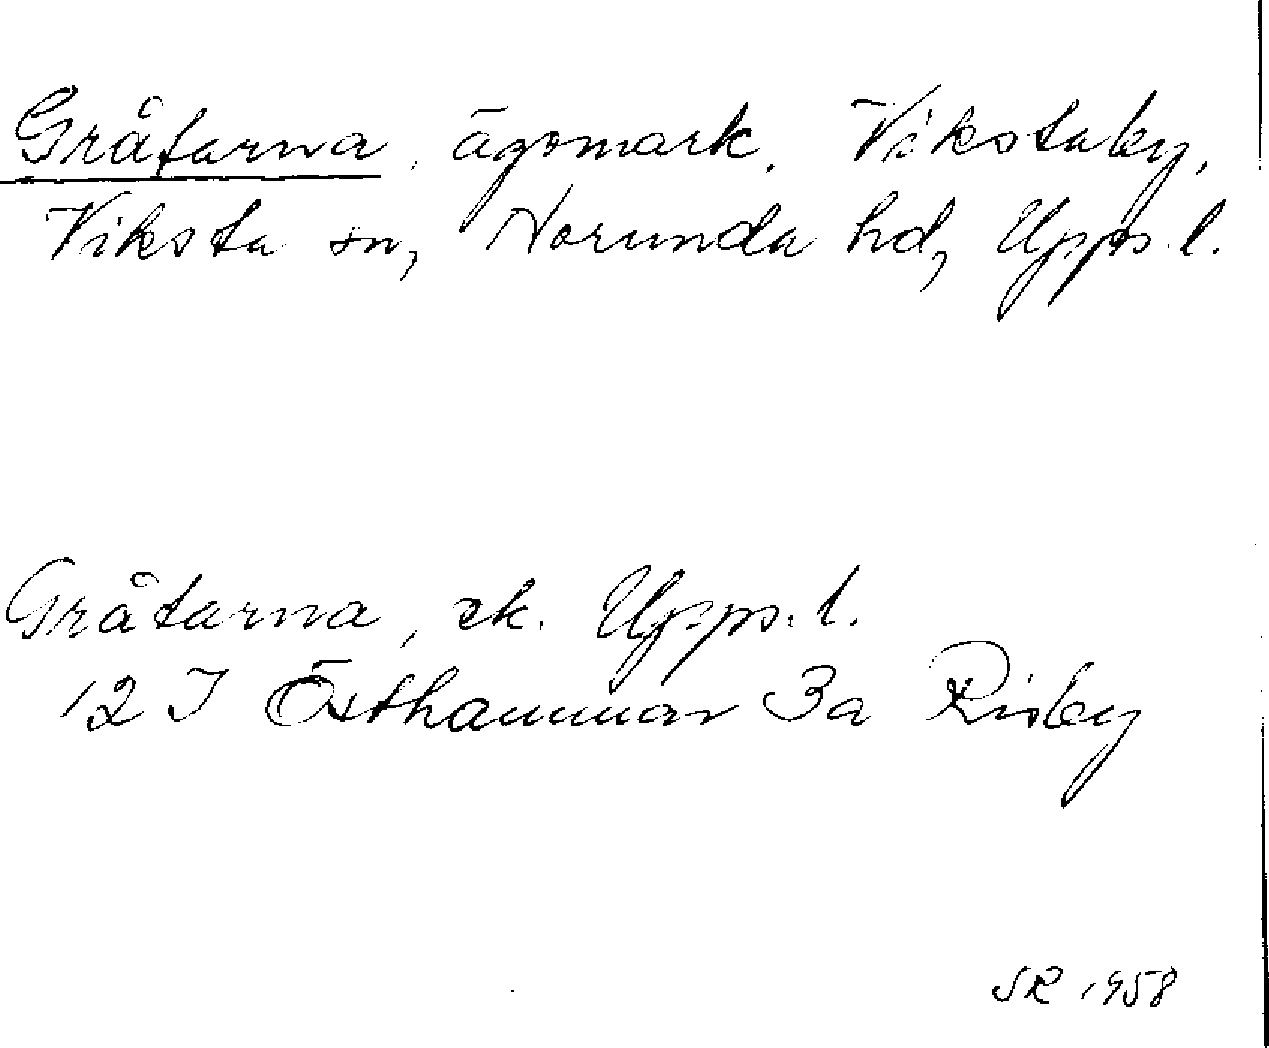 Gråtarna, ägomark. Viksta by,
Viksta sn, Norunda hd, Upps. l.
Gråtarna, ek. Upps. l.
12 I Östhammar 3a Risby
SR 1958